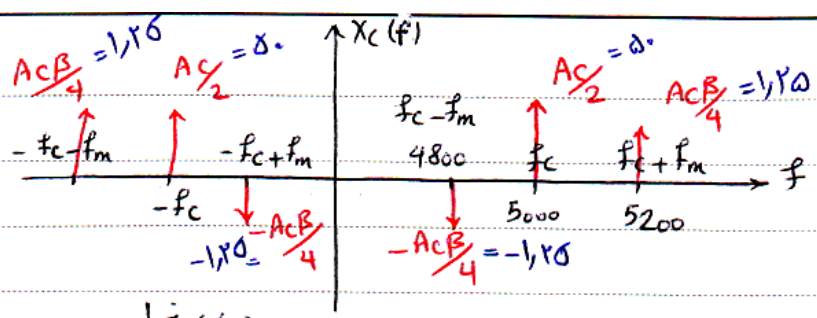 X_c(f)
A_cβ/4 = ۱,۲۵
A_c/2 = ۵۰
A_c/2 = ۵۰
A_cβ/4 = ۱,۲۵
f_c - f_m
-f_c - f_m
-f_c + f_m
4800
f_c
f_c + f_m
f
-f_c
5000
5200
-۱,۲۵ = -A_cβ/4
-A_cβ/4 = -۱,۲۵